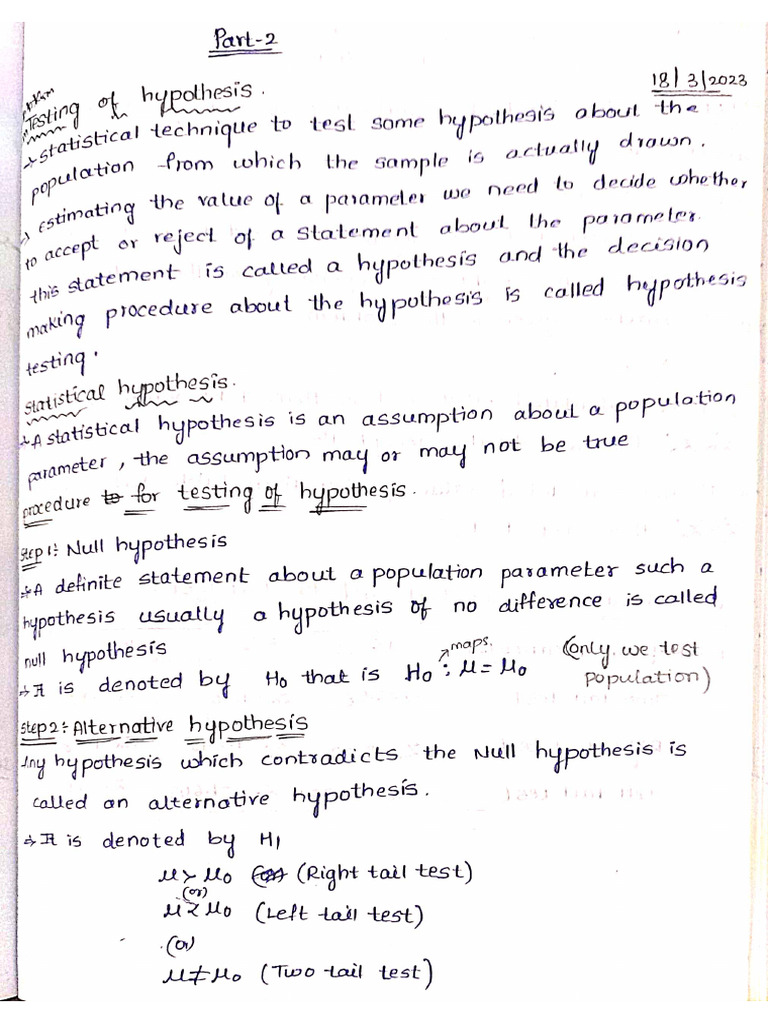 Part-2
18/3/2023
Testing of hypothesis.
→ statistical technique to test some hypothesis about the
population from which the sample is actually drawn.
→ Estimating the value of a parameter we need to decide whether
to accept or reject of a statement about the parameter.
this statement is called a hypothesis and the decision
making procedure about the hypothesis is called hypothesis
testing.
Statistical hypothesis.
→ A statistical hypothesis is an assumption about a population
parameter, the assumption may or may not be true
procedure for testing of hypothesis.
Step 1: Null hypothesis
→ A definite statement about a population parameter such a
hypothesis usually a hypothesis of no difference is called
null hypothesis
→ It is denoted by H₀ that is H₀ : μ = μ₀
maps.
(only we test
population)
Step 2: Alternative hypothesis
Any hypothesis which contradicts the Null hypothesis is
called an alternative hypothesis.
→ It is denoted by H₁
μ > μ₀ (Right tail test)
(or)
μ < μ₀ (Left tail test)
(or)
μ ≠ μ₀ (Two tail test)